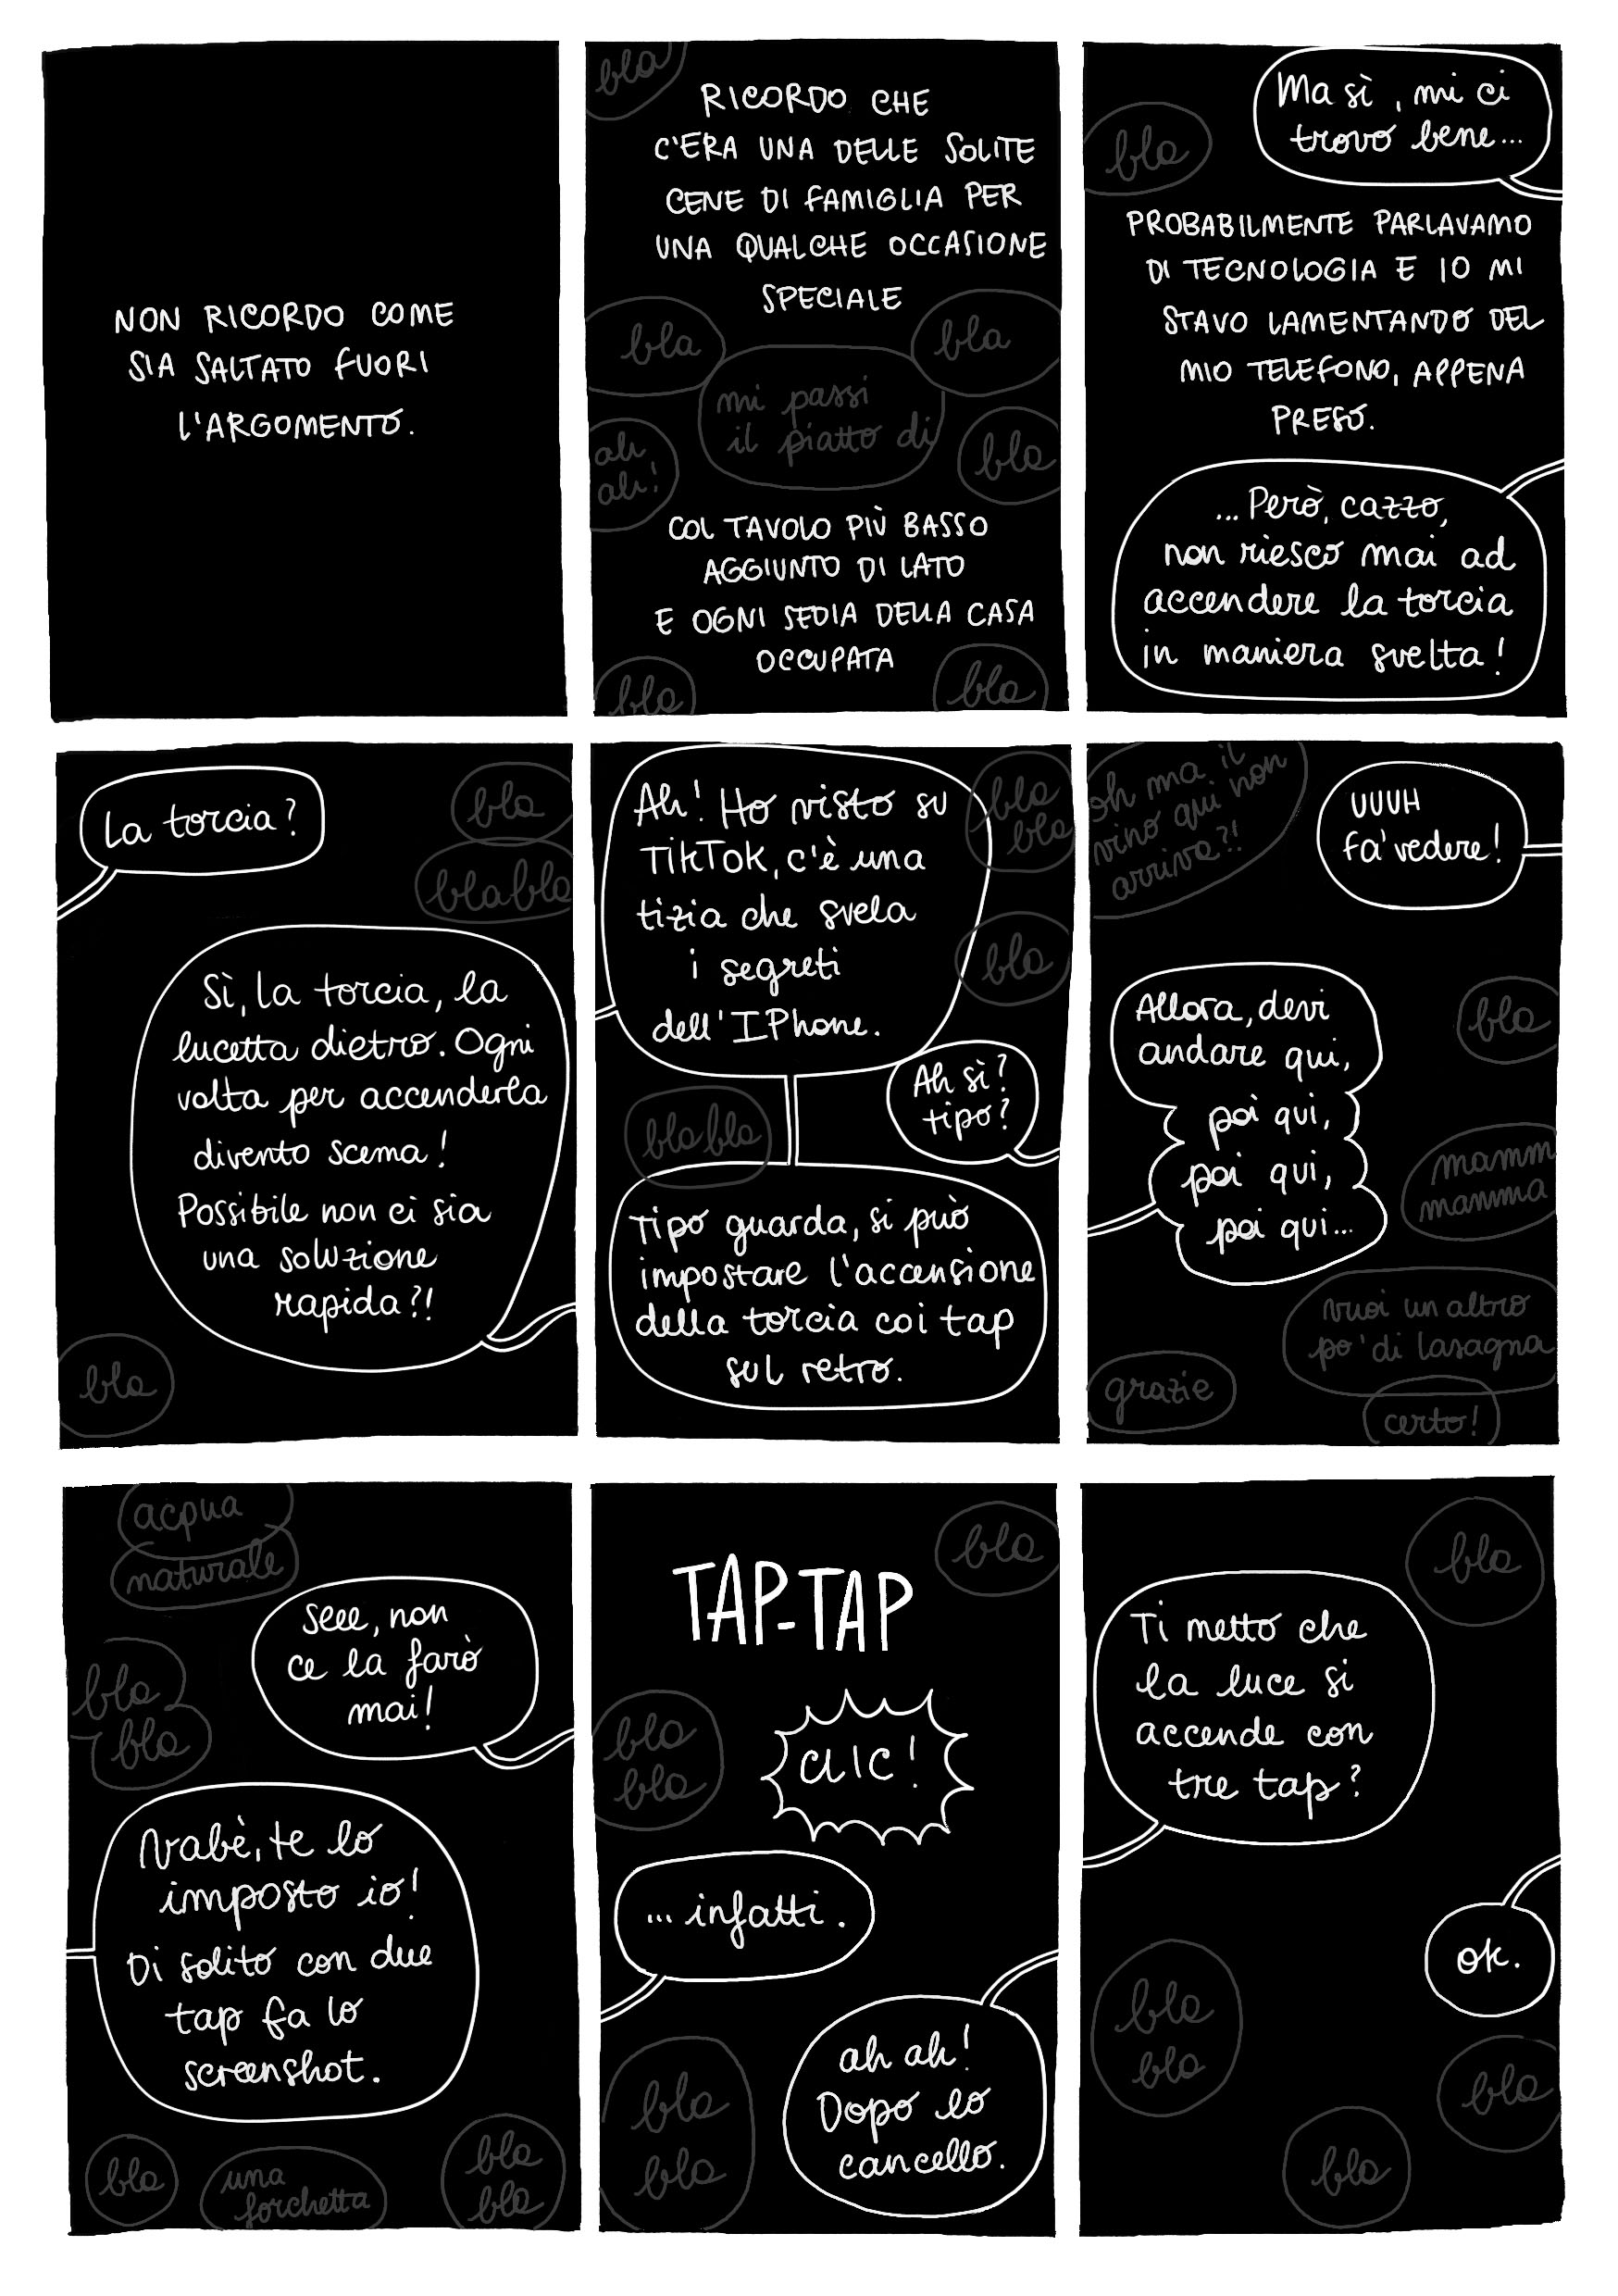 NON RICORDO COME
SIA SALTATO FUORI
L'ARGOMENTO.
bla
RICORDO CHE
C'ERA UNA DELLE SOLITE
CENE DI FAMIGLIA PER
UNA QUALCHE OCCASIONE
SPECIALE
bla
bla
mi passi
il piatto di
ah
ah!
bla
COL TAVOLO PIÙ BASSO
AGGIUNTO DI LATO
E OGNI SEDIA DELLA CASA
OCCUPATA
bla
bla
Ma sì, mi ci
trovo bene...
bla
PROBABILMENTE PARLAVAMO
DI TECNOLOGIA E IO MI
STAVO LAMENTANDO DEL
MIO TELEFONO, APPENA
PRESO.
...Però, cazzo,
non riesco mai ad
accendere la torcia
in maniera svelta!
La torcia?
bla
bla bla
Sì, la torcia, la
lucetta dietro. Ogni
volta per accenderla
divento scema!
Possibile non ci sia
una soluzione
rapida?!
bla
Ah! Ho visto su
TikTok, c'è una
tizia che svela
i segreti
dell'IPhone.
bla
bla
bla
Ah sì?
tipo?
bla bla
Tipo guarda, si può
impostare l'accensione
della torcia coi tap
sul retro.
oh ma il
vino qui non
arriva?!
UUUH
fa' vedere!
Allora, devi
andare qui,
poi qui,
poi qui,
poi qui...
bla
mamm
mamma
vuoi un altro
po' di lasagna
grazie
certo!
acqua
naturale
Seee, non
ce la farò
mai!
bla
bla
Vabè, te lo
imposto io!
Di solito con due
tap fa lo
screenshot.
bla
una
forchetta
bla
bla
bla
TAP-TAP
bla
bla
CLIC!
...infatti.
ah ah!
Dopo lo
cancello.
bla
bla
bla
Ti metto che
la luce si
accende con
tre tap?
ok.
bla
bla
bla
bla